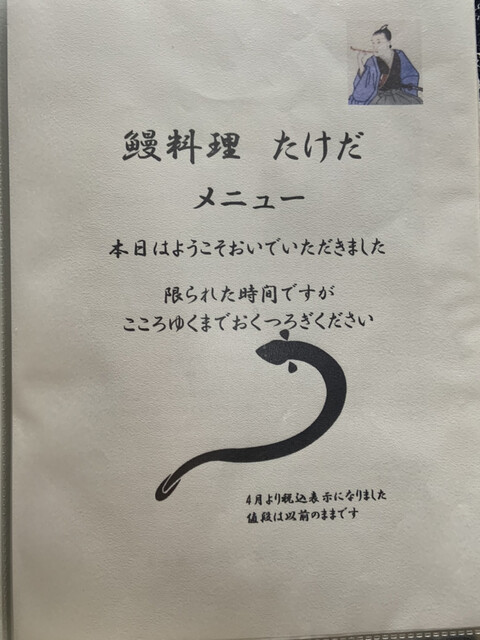 鰻料理 たけだ
メニュー
本日はようこそおいでいただきました
限られた時間ですが
こころゆくまでおくつろぎください
4月より税込表示になりました
値段は以前のままです